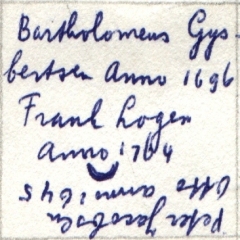 Bartholomeus Gys-
bertsen Anno 1696
Frank Logen
Anno 1764
Peter Jacobsen
Otto anni 645